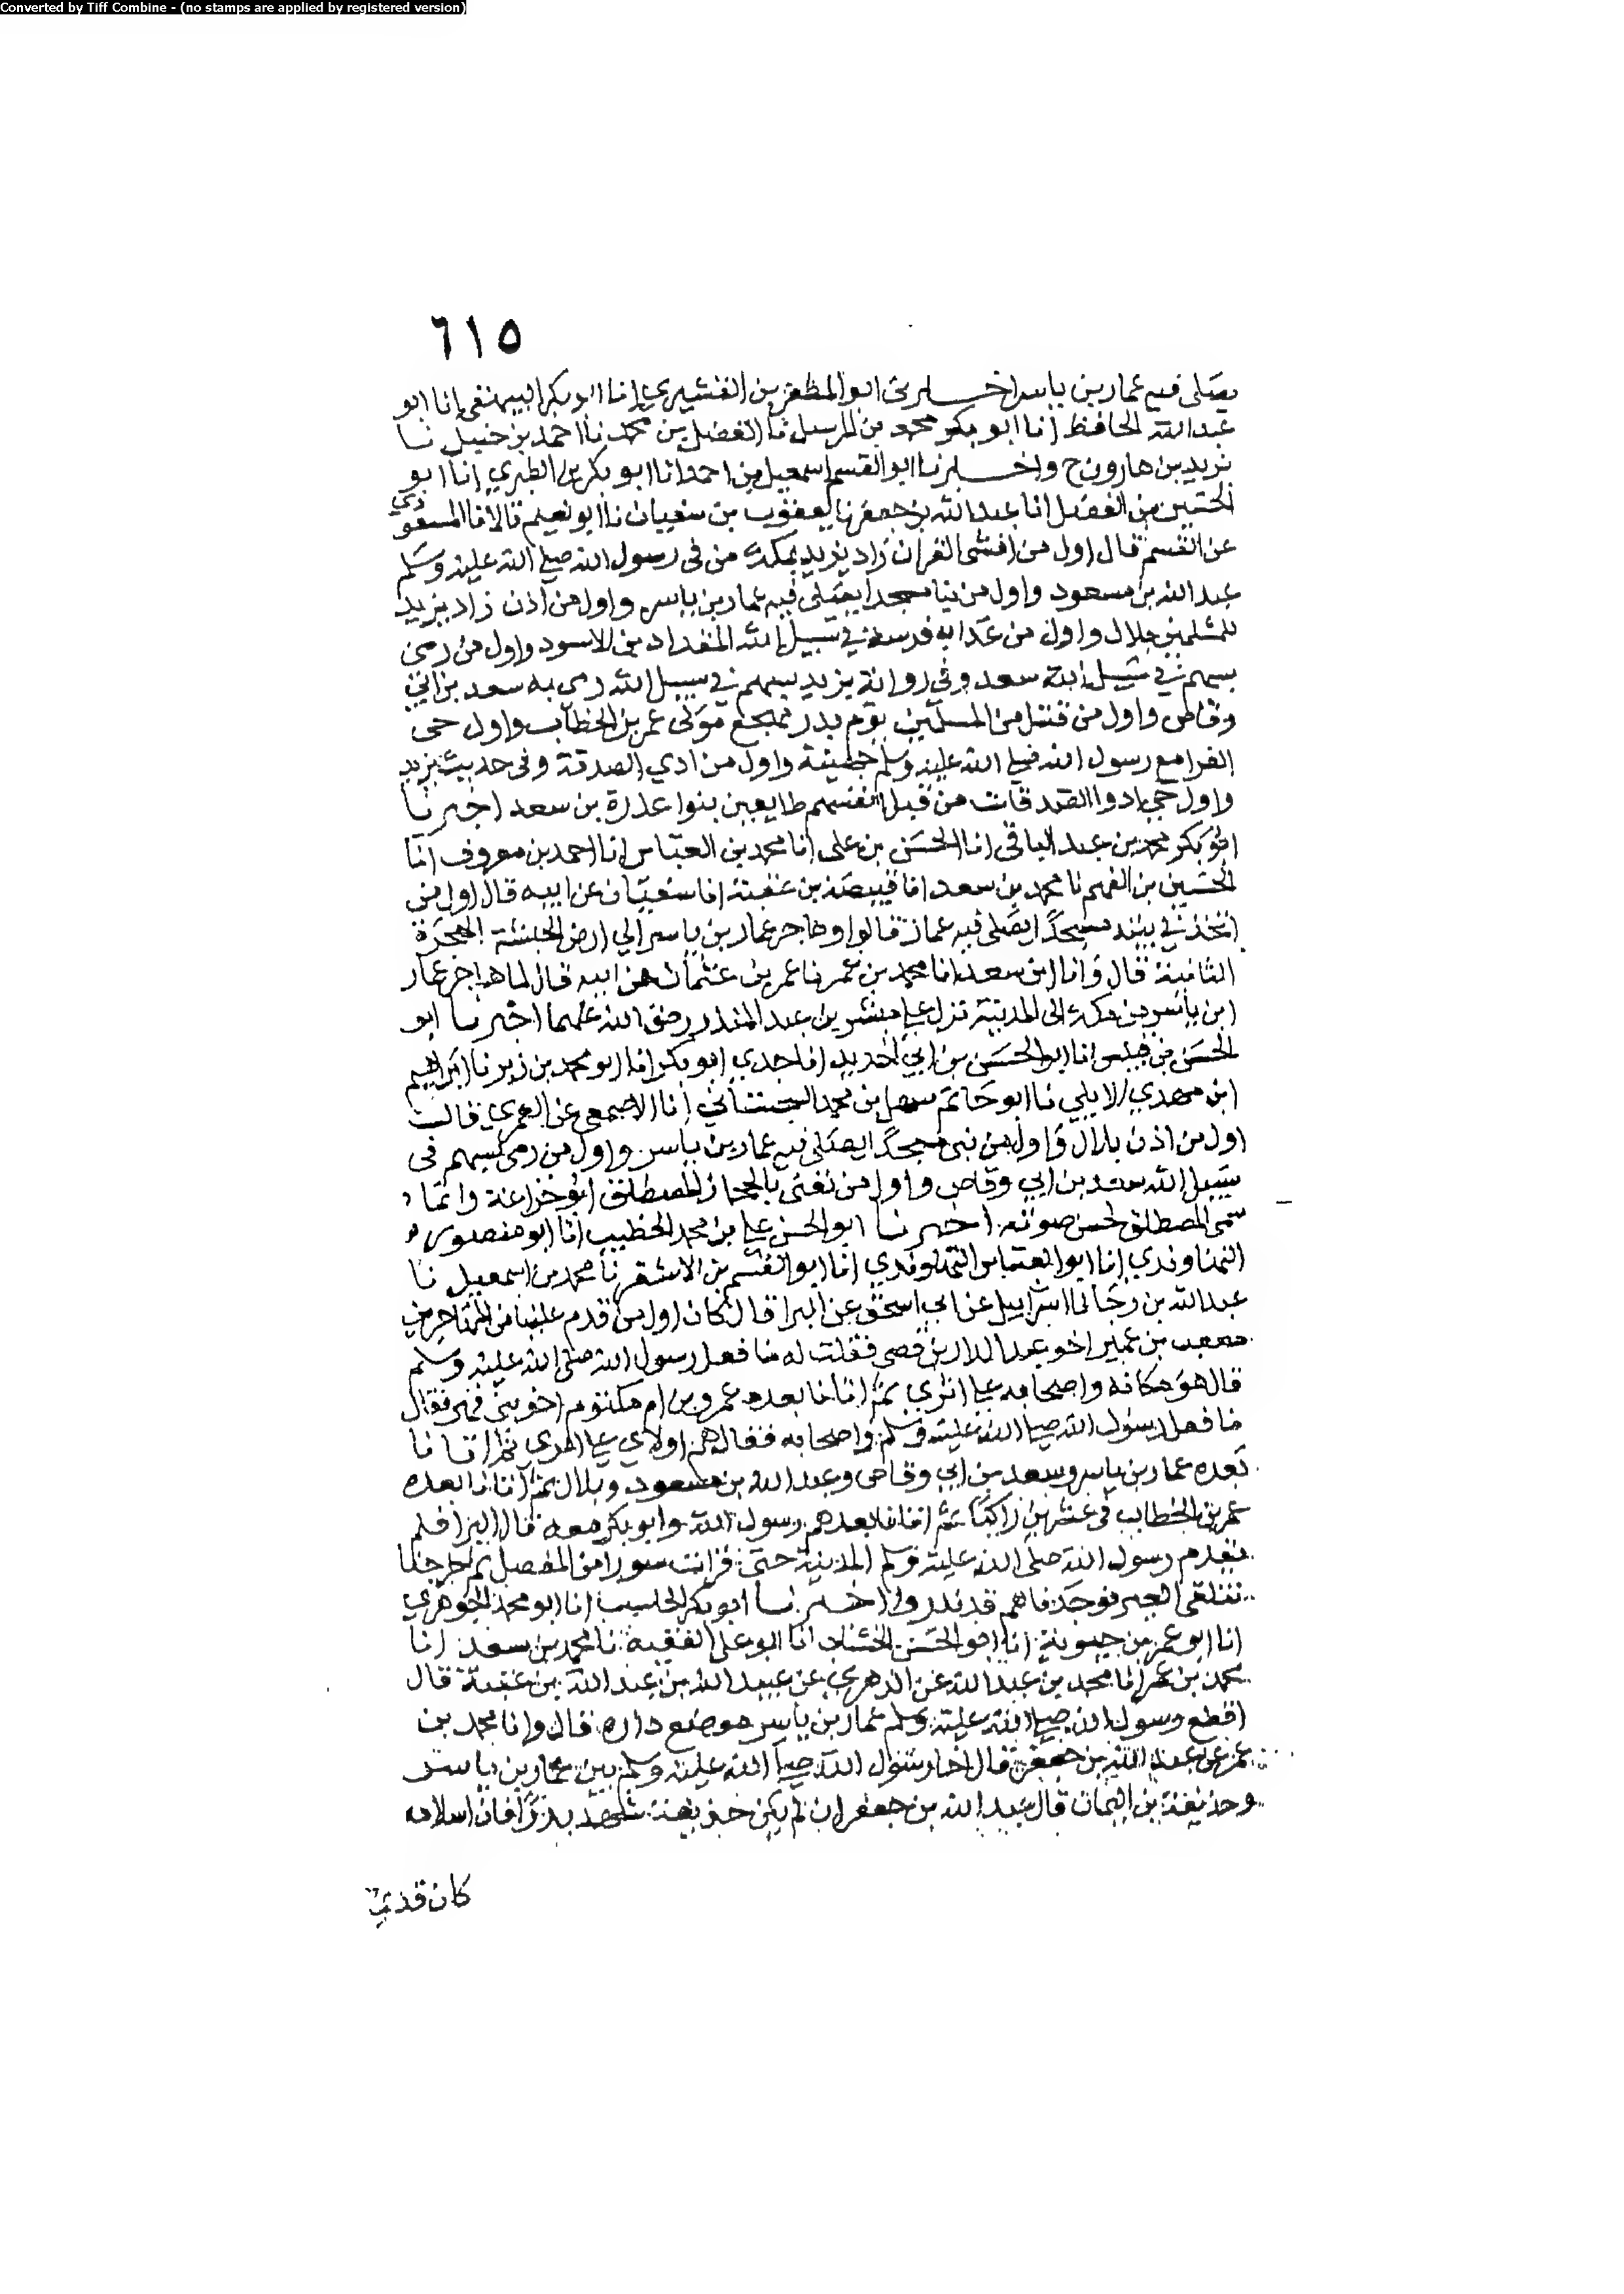 Converted by Tiff Combine - (no stamps are applied by registered version)
٦١٥
يصلى فيه عمار بن ياسر اخبرنى ابو المظفر بن القشيري انا ابو بكر البيهقى انا ابو
عبد الله الحافظ انا ابو بكر محمد بن المرسل نا الفضل بن محمد نا احمد بن حنبل نا
يزيد بن هارون ح واخبرنا ابو القسم اسمعيل بن احمد انا ابو بكر بن الطبري انا ابو
الحسين بن الفضل انا عبد الله بن جعفر نا يعقوب بن سفيان نا ابو نعيم قالا نا المسعودي
عن القسم قال اول من افشى القران زاد يزيد بمكة من فى رسول الله صلى الله عليه وسلم
عبد الله بن مسعود واول من بنا مسجدا يصلى فيه عمار بن ياسر واول من اذن زاد يزيد
للمسلمين بلال واول من عدا به فرسه في سبيل الله المقداد بن الاسود واول من رمى
بسهم في سبيل الله سعد وفي رواية يزيد بسهم في سبيل الله رمى به سعد بن ابي
وقاص واول من قتل من المسلمين يوم بدر مهجع مولى عمر بن الخطاب واول حى
الفوا مع رسول الله صلى الله عليه وسلم جهينة واول من ادي الصدقة وفى حديث يزيد
واول حي ادوا الصدقات من قبل انفسهم طايعين بنوا عذرة بن سعد اخبرنا
ابو بكر محمد بن عبد الباقى انا الحسن بن على انا محمد بن العباس انا احمد بن معروف انا
الحسين بن الفهم نا محمد بن سعد انا قبيصة بن عقبة انا سفيان عن ابيه قال اول من
اتخذ في بيته مسجدا يصلى فيه عمار قالوا وهاجر عمار بن ياسر الي ارض الحبشة الهجرة
الثانية قال وانا ابن سعد انا محمد بن عمر نا عمر بن عثمان عن ابيه قال لما هاجر عمار
ابن ياسر من مكة الى المدينة نزل على مبشر بن عبد المنذر رضى الله عنهما اخبرنا ابو
الحسن بن قبيس انا ابو الحسن بن ابي الحديد انا جدي ابو بكر انا ابو محمد بن زبر نا ابراهيم
ابن مهدي الايلي نا ابو حاتم سهل بن محمد السجستاني انا الاصمعي عن العمري قالت
اول من اذن بلال واول من بنى مسجدا يصلى فيه عمار بن ياسر واول من رمى بسهم فى
سبيل الله سعد بن ابي وقاص واول من تغنى بالحجاز المصطلق ابو خزاعة وانما
سمى المصطلق لحسن صوته اخبرنا ابو الحسن على بن محمد الخطيب انا ابو منصور
النهاوندي انا ابو العباس النهاوندي انا ابو القسم بن الاشقر نا محمد بن اسمعيل نا
عبد الله بن رجا نا اسرائيل عن ابي اسحق عن البرا قال كان اول من قدم علينا من المهاجرين
مصعب بن عمير اخو عبد الدار بن قصى فقلت له ما فعل رسول الله صلى الله عليه وسلم
قال هو مكانه واصحابه على اثري ثم اتانا بعده عمرو بن ام مكتوم اخو بنى فهر فقال
ما فعل رسول الله صلى الله عليه وسلم واصحابه فقال هم اولاي على اثري ثم اتانا
بعده عمار بن ياسر وسعد بن ابي وقاص وعبد الله بن مسعود وبلال ثم اتانا بعده
عمر بن الخطاب فى عشرين راكبا ثم اتانا بعدهم رسول الله وابو بكر معه قال البرا فلم
يقدم رسول الله صلى الله عليه وسلم المدينة حتى قرات سورا من المفصل ثم خرجنا
نتلقى العير فوجدناهم قد نذروا اخبرنا ابو بكر الحاسب انا ابو محمد الجوهري
انا ابو عمر بن حيوية انا ابو الحسن الخشاب انا ابو على الفقيه نا محمد بن سعد انا
محمد بن عمر انا محمد بن عبد الله عن الزهري عن عبيد الله بن عبد الله بن عتبة قال
اقطع رسول الله صلى الله عليه وسلم عمار بن ياسر موضع داره قال وانا محمد بن
عمر عن عبد الله بن جعفر قال اخا رسول الله صلى الله عليه وسلم بين عمار بن ياسر
وحذيفة بن اليمان قال عبد الله بن جعفر ان لم يكن حذيفة شهد بدرا فان اسلامه
كان قديما